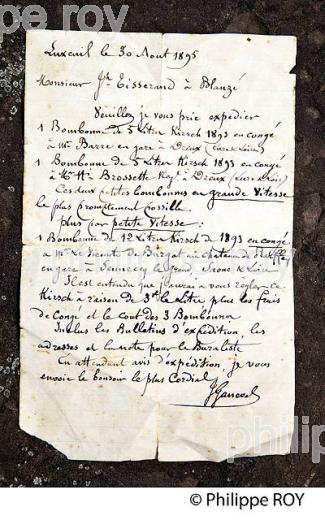 Luxeuil le 30 Aout 1895
Monsieur Jh Tisserand à
Veuillez je vous prie expedier
1 Bombonne de 5 Litres Kirsch 1893 en congé
à Mr Barre en gare à Dreux (Eure & Loir)
1 Bombonne de 5 Litres Kirsch 1893 en congé
à Brossette à Dreux (Eure & Loir)
Ces deux petites bombonnes en grande Vitesse
le plus promptement possible
plus par petite Vitesse :
1 Bombonne de 12 Litres Kirsch de 1893 en congé
a Mr Le Vicomte de au chateau de
en gare à Sennecey le grand, Saone & Loire
Il est entendu que j'aurai a vous régler ce
Kirsch à raison de 3f le Litre plus les frais
de Congé et le cout des 3 Bombonnes
Inclus les Bulletins d'expédition, les
adresses et la note pour le Buraliste
En attendant avis d'expédition, je vous
envoie le bonsoir le plus Cordial
© Philippe ROY